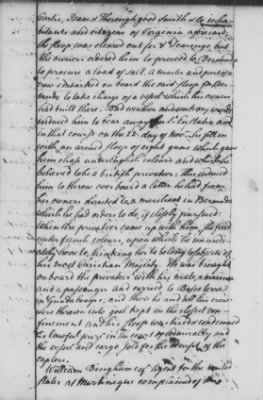 Curtis, Isaac & Thoroughgood Smith & Co inha-
bitants and citizens of Virginia aforesaid
the sloop was cleared out for St Domingo but
the owners ordered him to proceed to Bermuda
to procure a load of salt. A master and part of a
crew embarked on board the said sloop at Ber-
muda to take charge of a vessel which the owners
had built there. Bad weather and contrary winds
induced him to bear away for St Eustatia and
in that course on the 22d day of Novr he fell in
with an armed sloop of eight guns which gave
him chase under English colours and which he
believed to be a British privateer: this induced
him to throw over board a letter he had from
his owners directed to a merchant in Bermuda
which he had orders to do, if closely pursued:
when the privateer came up with him, she fired
under french colours, upon which he immedi-
ately hove to, thinking her to belong to subjects of
his most Christian Majesty. He was brought
on board the privateer with his mate, a mariner
and a passenger and carried to Basseterre
in Guadaloupe; and their he and all his crew
were thrown into goal kept in the closest con-
finement and his sloop was tried & condemned
as lawful prize in the court of admiralty and
the vessel and cargo sold for the benefit of the
captors.
William Bingham esqr agent for the united
states at Martinique complained of this